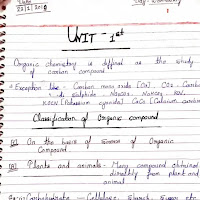 Date
22/1/2020
Day - Wednesday
UNIT - 1st
Organic chemistry is defined as the study
of carbon compound.
* Exception like - Carbon mono oxide [CO], CO2, Carbon
disulphide, NaHCO3, KCN,
KOCN [Potassium cyanate], CaC2 [Calcium
Classification of Organic compound
On the basis of Source of Organic
Compound.
Plants and animals - Many compound obtained
directly from plant and
animal
Carbohydrate - Cellulose, Starch, Sugar etc.